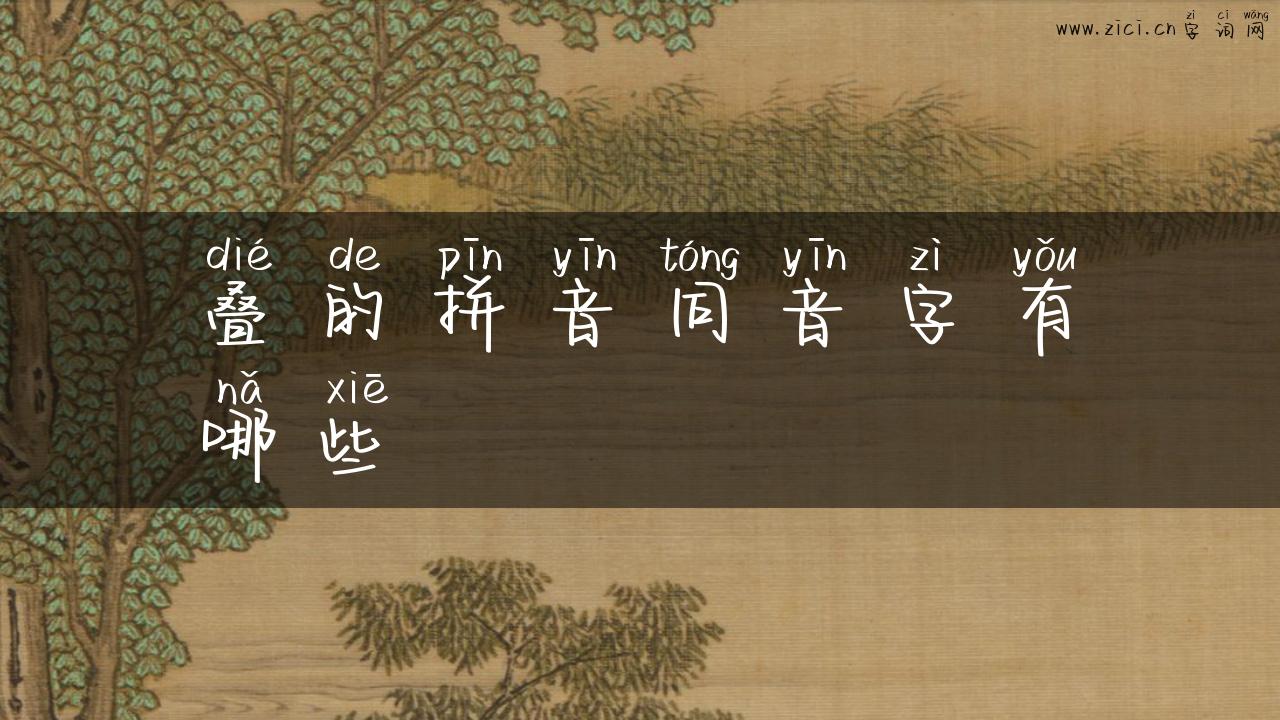 zì cí wǎng
www.zici.cn 字词网
dié de pīn yīn tóng yīn zì yǒu
叠的拼音同音字有
nǎ xiē
哪些